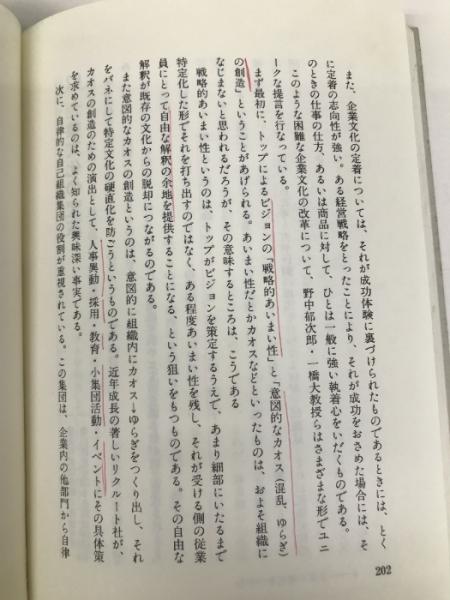 また、企業文化の定着については、それが成功体験に裏づけられたものであるときには、とく
に定着の志向性が強い。ある経営戦略をとったことにより、それが成功をおさめた場合には、そ
のときの仕事の仕方、あるいは商品に対して、ひとは一般に強い執着心をいだくものである。
このような困難な企業文化の改革について、野中郁次郎・一橋大教授らはさまざまな形でユニ
ークな提言を行なっている。
まず最初に、トップによるビジョンの「戦略的あいまい性」と「意図的なカオス（混乱、ゆらぎ）
の創造」ということがあげられる。あいまい性だとかカオスなどといったものは、およそ組織に
なじまないと思われるだろうが、その意味するところは、こうである
戦略的あいまい性というのは、トップがビジョンを策定するうえで、あまり細部にいたるまで
特定化した形でそれを打ち出すのではなく、ある程度あいまい性を残し、それが受ける側の従業
員にとって自由な解釈の余地を提供することになる、という狙いをもつものである。その自由な
解釈が既存の文化からの脱却につながるのである。
また意図的なカオスの創造というのは、意図的に組織内にカオス→ゆらぎをつくり出し、それ
をバネにして特定文化の硬直化を防ごうというものである。近年成長の著しいリクルート社が、
カオスの創造のための演出として、人事異動・採用・教育・小集団活動・イベントにその具体策
を求めているのは、よく知られた興味深い事実である。
次に、自律的な自己組織集団の役割が重視されている。この集団は、企業内の他部門から自律
202